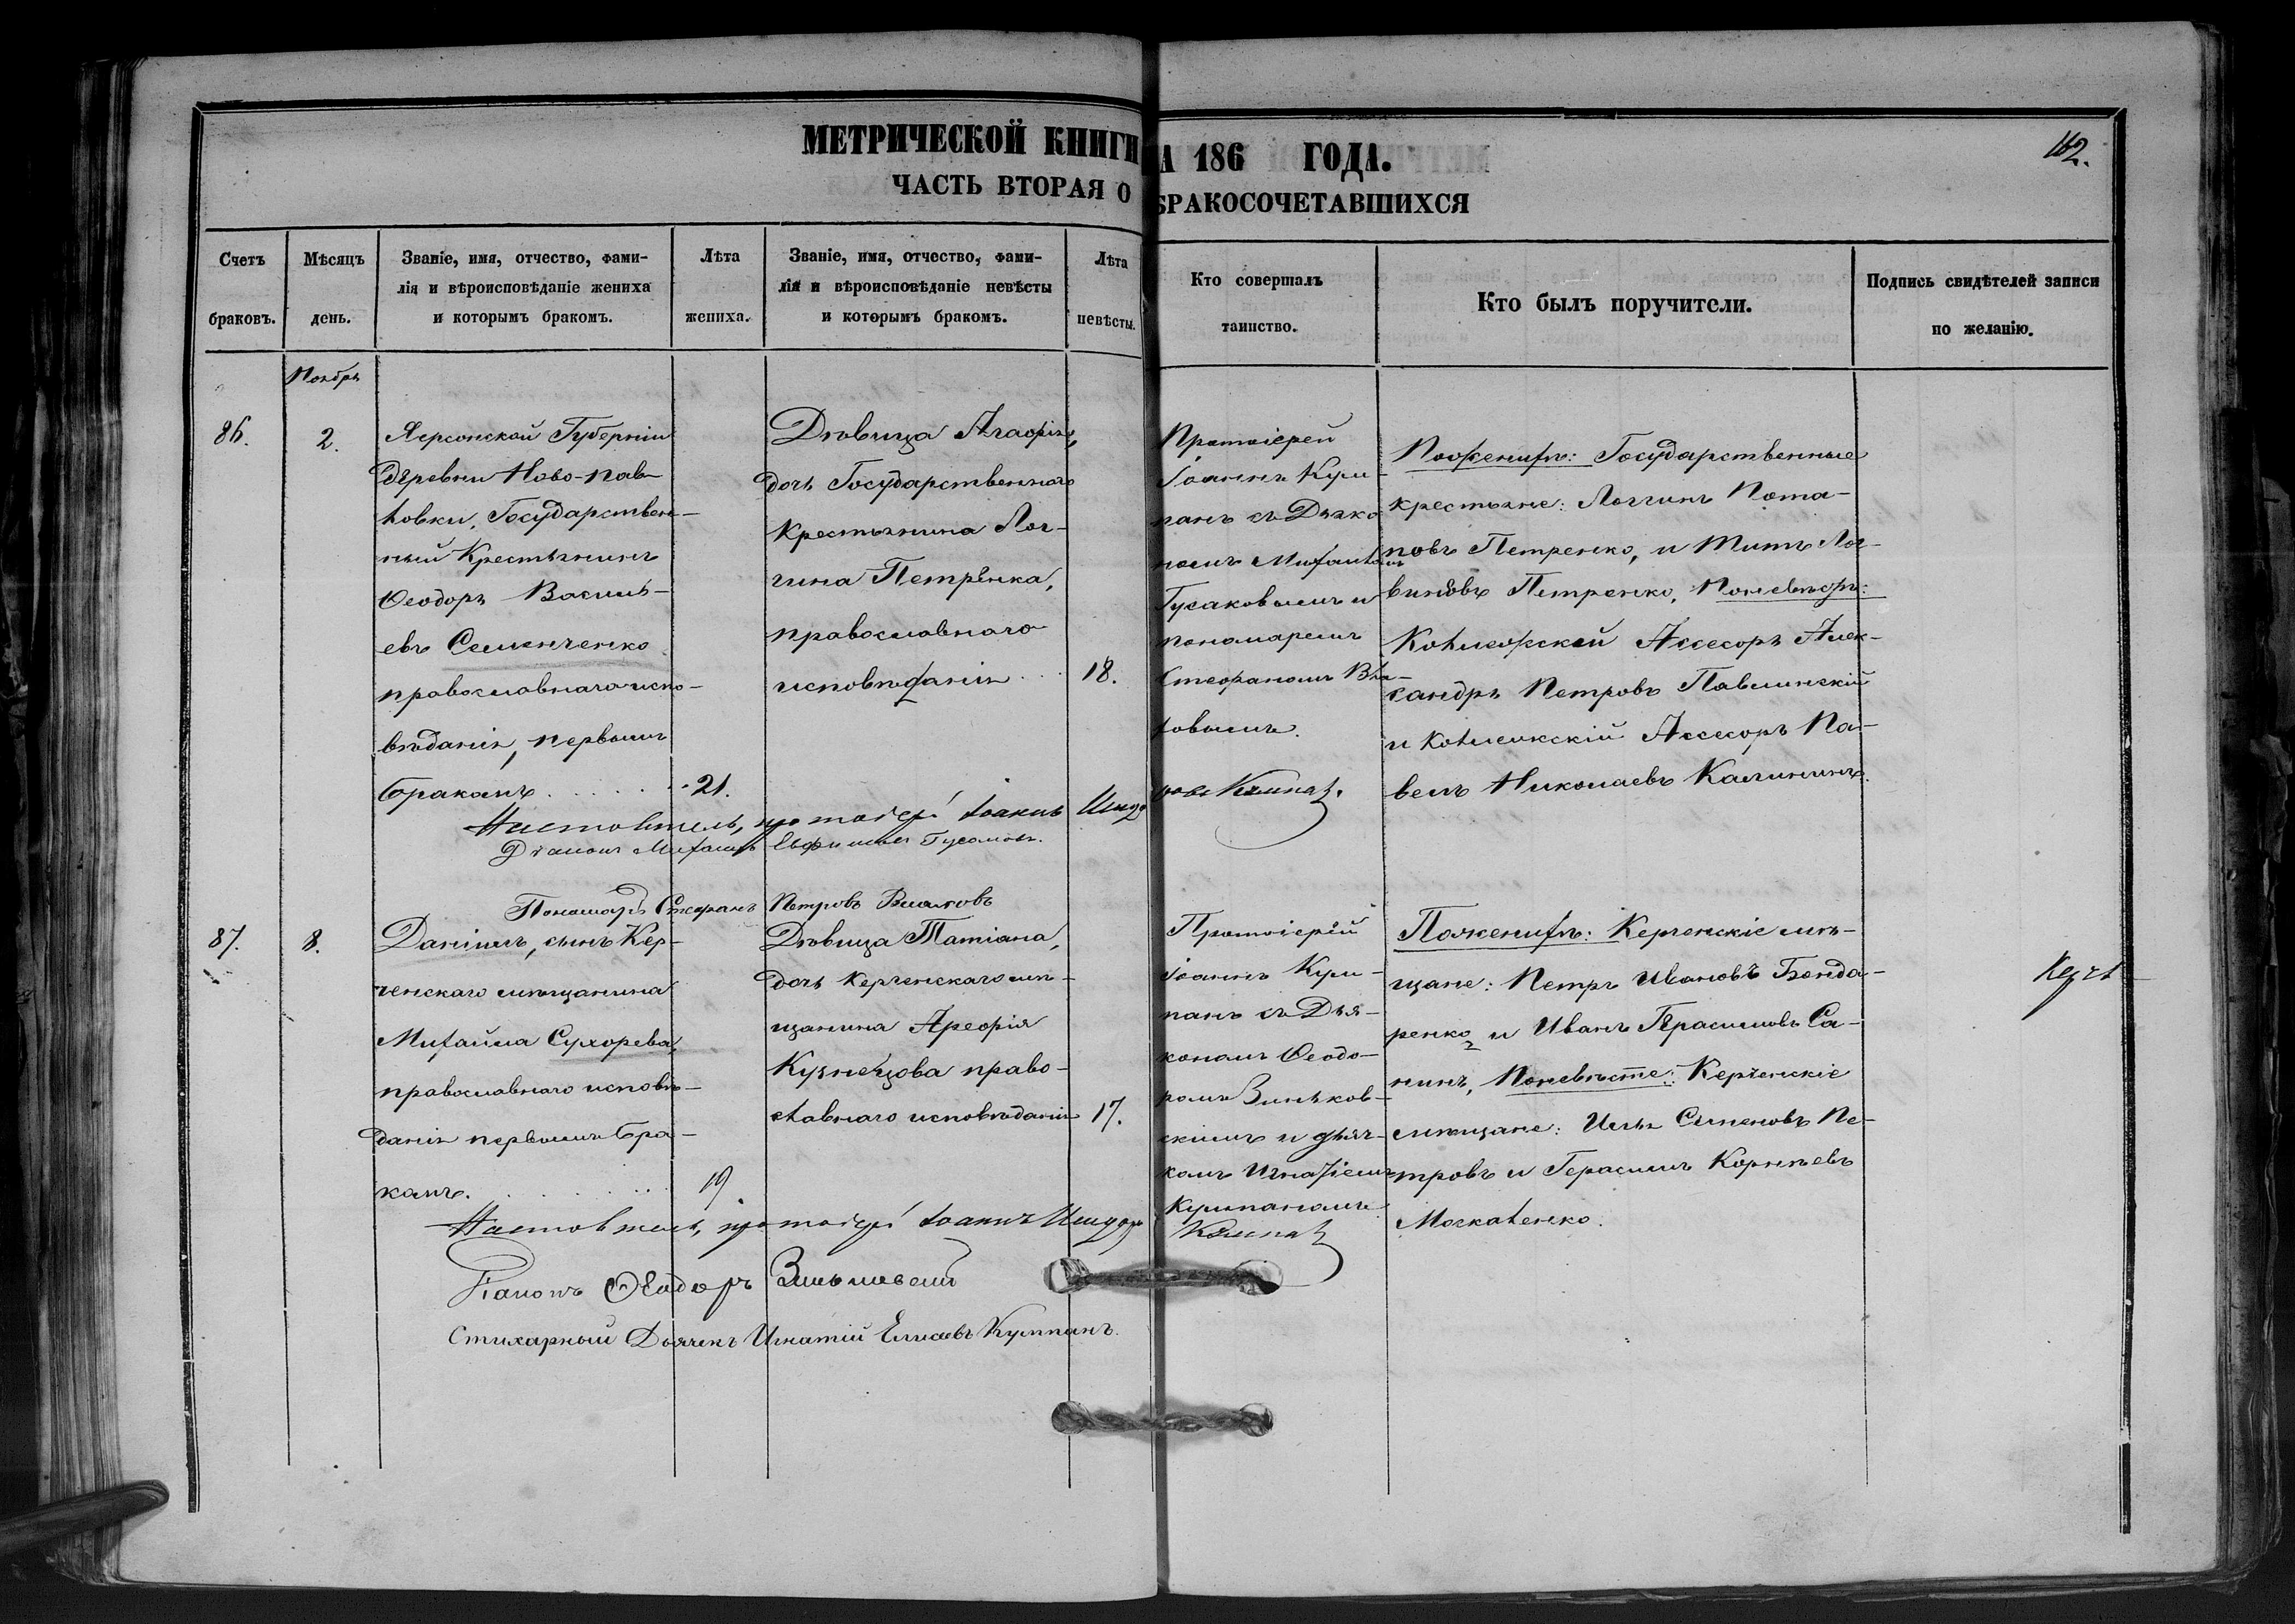 МЕТРИЧЕСКОЙ КНИГИ
А 186 ГОДА.
162.
ЧАСТЬ ВТОРАЯ О
БРАКОСОЧЕТАВШИХСЯ
Счетъ
браковъ.
Мѣсяцъ
день.
Званіе, имя, отчество, фами-
лія и вѣроисповѣданіе жениха
и которымъ бракомъ.
Лѣта
жениха.
Званіе, имя, отчество, фами-
лія и вѣроисповѣданіе невѣсты
и которымъ бракомъ.
Лѣта
невѣсты.
Кто совершалъ
таинство.
Кто былъ поручители.
Подпись свидѣтелей записи
по желанію.
Ноябрь
86.
2.
Херсонской Губерніи
деревни Ново-Пав-
ловки, Государствен-
ный Крестьянинъ
Ѳеодоръ Василь-
евъ Семенченко
православнаго испо-
вѣданія, первымъ
бракомъ
21.
Дѣвица Агафія,
дочь Государственнаго
Крестьянина Лог-
гина Петренка,
православнаго
исповѣданія
18.
Протоіерей
Іоаннъ Кум-
панъ съ Дьяко
номъ Михаиломъ
Гусаковымъ и
пономаремъ
Стефаномъ Вла-
совымъ.
По женихѣ: Государственные
крестьяне: Логгинъ Пота-
повъ Петренко, и Титъ Лог-
виновъ Петренко, По невѣстѣ:
Коллежскій Ассесоръ Алек-
сандръ Петровъ Павлинскій
и Коллежскій Ассесоръ Па-
велъ Николаевъ Калининъ.
Настоятель, протоіерей Іоаннъ Кумпанъ
Діаконъ Михаилъ Гусаковъ.
Пономарь Стефанъ Петровъ
87.
8.
Даніилъ, сынъ Кер-
ченскаго мѣщанина
Михаила Сухорева,
православнаго исповѣ-
данія первымъ бра-
комъ.
19.
Дѣвица Татіана,
дочь Керченскаго мѣ-
щанина Арефія
Кузнецова право-
славнаго исповѣданія
17.
Протоіерей
Іоаннъ Кум-
панъ съ Дья-
кономъ Ѳеодо-
ромъ Зиньков-
скимъ и дьяч-
комъ Игнатіемъ
Кумпаномъ
По женихѣ: Керченскіе мѣ-
щане: Петръ Ивановъ Бонда-
ренко и Иванъ Герасимовъ Са-
нинъ, По невѣсте: Керченскіе
мѣщане: Илья Семеновъ Пе-
тровъ и Герасимъ Корнѣевъ
Москаленко.
Керчь
Настоятель, протоіерей Іоаннъ Кумпанъ
Діаконъ Ѳеодоръ Зиньковскій
Стихарный Дьячекъ Игнатій Елисеевъ Кумпанъ.